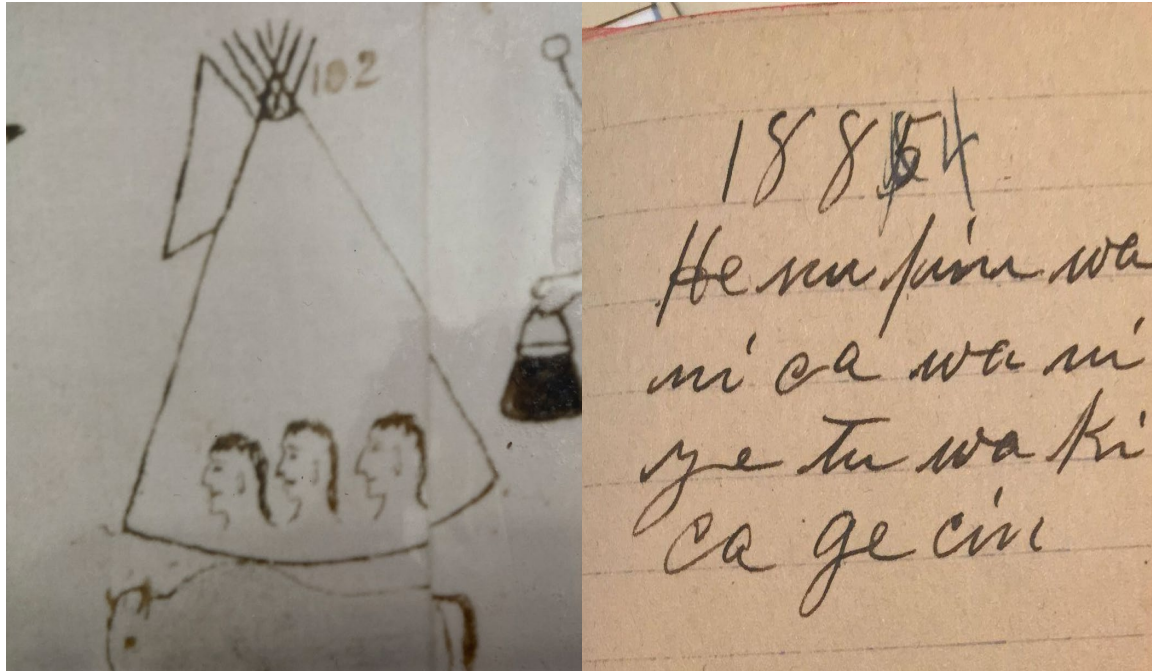 182
1884
He nu pin wa
ni ca wa ni
ye tu wa ki
ca ge cin